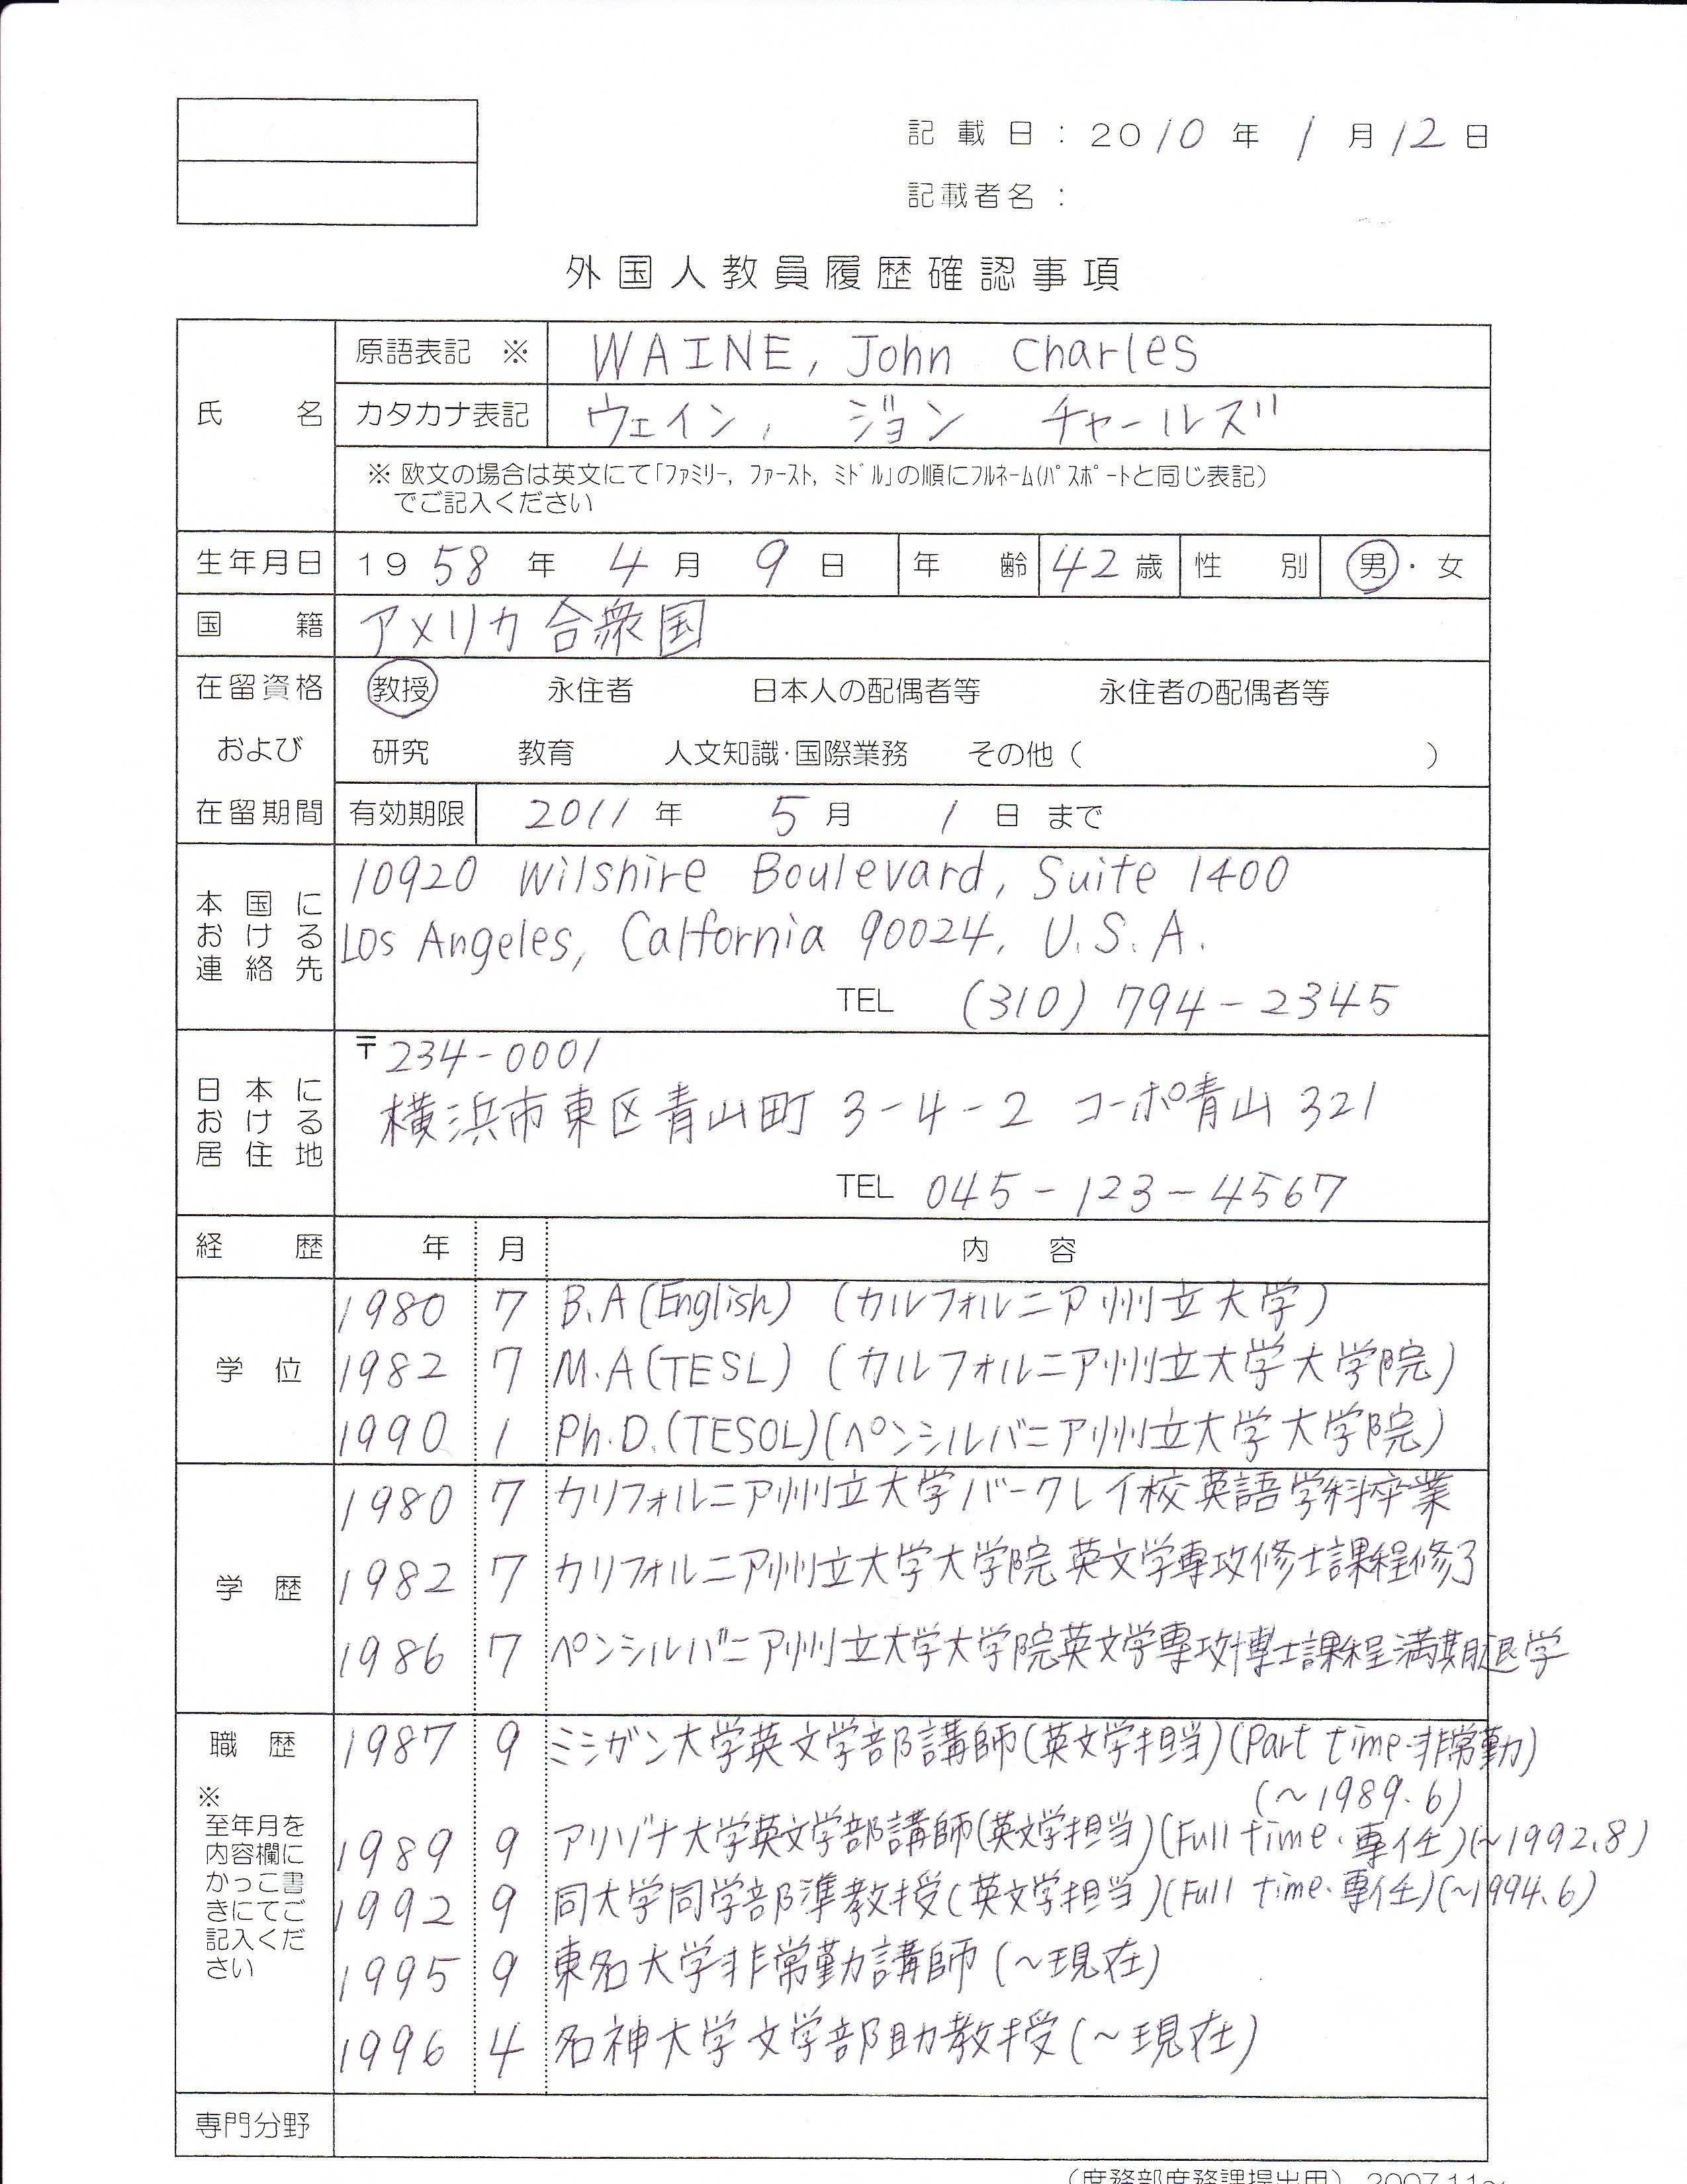 記載日：2010年1月12日
記載者名：
外国人教員履歴確認事項
氏名 原語表記 ※ WAINE, John Charles
カタカナ表記 ウェイン, ジョン チャールズ
※ 欧文の場合は英文にて「ﾌｧﾐﾘｰ, ﾌｧｰｽﾄ, ﾐﾄﾞﾙ」の順にﾌﾙﾈｰﾑ(ﾊﾟｽﾎﾟｰﾄと同じ表記)
でご記入ください
生年月日 1958年4月9日 年齢 42歳 性別 男・女
国籍 アメリカ合衆国
在留資格 教授 永住者 日本人の配偶者等 永住者の配偶者等
および 研究 教育 人文知識・国際業務 その他（ ）
在留期間 有効期限 2011年5月1日まで
本国に
おける
連絡先
10920 Wilshire Boulevard, Suite 1400
Los Angeles, Calfornia 90024, U.S.A.
TEL (310) 794-2345
日本に
おける
居住地
〒234-0001
横浜市東区青山町3-4-2 コーポ青山321
TEL 045-123-4567
経歴 年 月 内容
学位
1980 7 B.A(English) (カルフォルニア州立大学)
1982 7 M.A(TESL) (カルフォルニア州立大学大学院)
1990 1 Ph.D.(TESOL)(ペンシルバニア州立大学大学院)
学歴
1980 7 カリフォルニア州立大学バークレイ校英語学科卒業
1982 7 カリフォルニア州立大学大学院英文学専攻修士課程修了
1986 7 ペンシルバニア州立大学大学院英文学専攻博士課程満期退学
職歴
※
至年月を
内容欄に
かっこ書
きにてご
記入くだ
さい
1987 9 ミシガン大学英文学部講師(英文学担当)(Part time・非常勤)
(～1989.6)
1989 9 アリゾナ大学英文学部講師(英文学担当)(Full time・専任)(～1992.8)
1992 9 同大学同学部準教授(英文学担当)(Full time・専任)(～1994.6)
1995 9 東名大学非常勤講師(～現在)
1996 4 名神大学文学部助教授(～現在)
専門分野
（庶務部庶務課提出用） 2007.11～